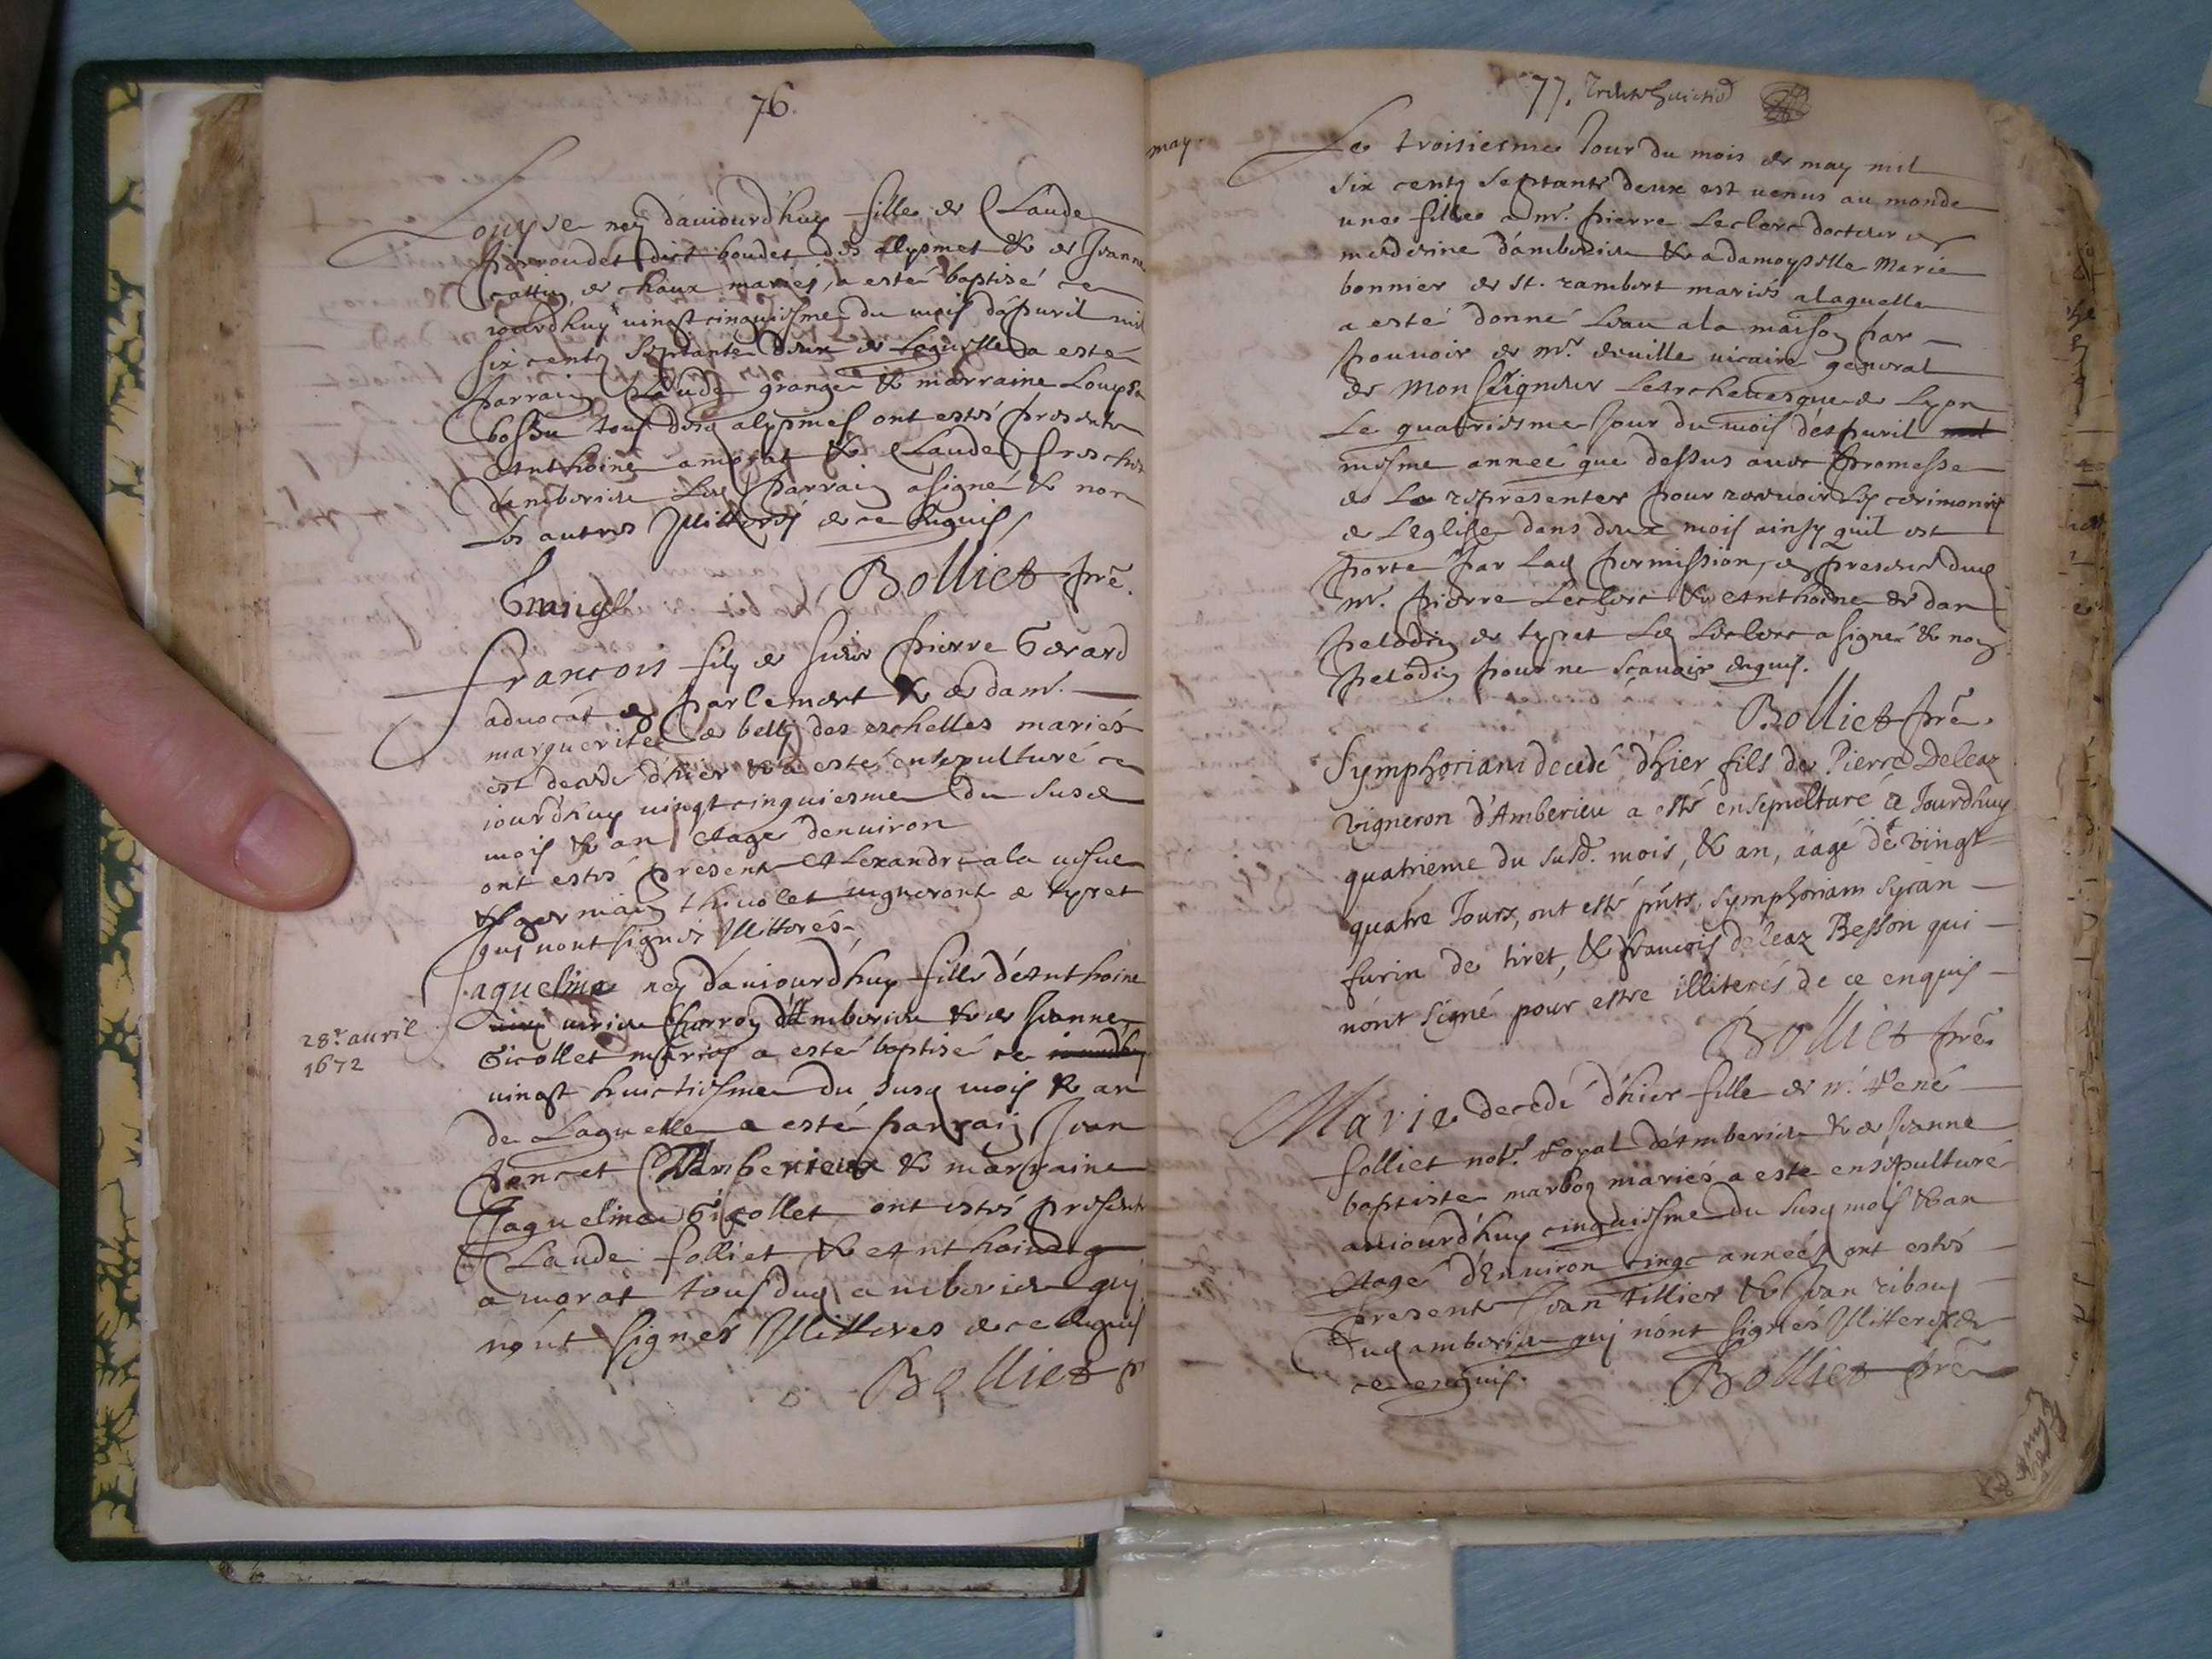 76.
Louyse ney d'auiourdhuy fille de Claude
perroudet dict boudet des allymes & de Jeanne
cattin de chaux mariés, a esté baptisé ce
iourdhuy vingt cinquiesme du mois d'apuril mil
six cents septante deux de Laquelle a esté
parrain Claude grange & marraine Louyse
bossu tous desd alymes ont estés presents
Anthoine amorat & Claude
d'amberieu Led parrain a signé & non
Les autres Illitterés de ce enquis
Grange Bolliet pre.
francois fils de sieur pierre Gerard
aduocat en parlement & de dam.
marguerite de belly des eschelles mariés
est decedé d'hier & a esté ensepulturé ce
iourd'huy vingt cinquiesme du susd
mois & an aagé denuiron
ont estés present Alexandre ala
& germain thiuolet vignerons de tyret
quj nont signés Illitterés
28e. auril
1672
Jaquelme ney dauiourdhuy fille d'Anthoine
perron d'Amberieu & de Jeanne
Gicollet mariés a esté baptisé ce
vingt huictiesme du susd mois & an
de Laquelle a esté parrain Jean
tencet d'Amberieux & marraine
Jaquelme Gicollet ont estés presents
Claude folliet & Anthoine
amorat tous dud amberieu quj
n'ont signés Illitteres de ce enquis
Bolliet p
77.
may.
Le troisiesme Jour du mois de may mil
six cents septante deux est venus au monde
une fille a mr. pierre Leclerc docteur en
medecine d'amberieu & a damoyselle Marie
bonnier de st. rambert mariés a laquelle
a esté donné Leau a la maison par
pouuoir de mr. deuille vicaire general
de Monseigneur Larcheuesque de Lyon
Le quatriesme Jour du mois d'apuril
mesme anneé que dessus auec promesse
de La representer pour receuoir Les cerimonies
de Leglise dans deux mois ainsy quil est
porté par Lad permission, en presence dud
mr. pierre Leclerc & Anthoine de dan
pelodin de tyret Led Leclerc a signé & non
pelodin pour ne scauoir enquis.
Bolliet pre.
Symphorian decedé d'hier fils de Pierre Deleaz
vigneron d'Amberieu a esté ensepulturé ce Jourdhuy
quatrieme du susd. mois, & an, aagé de vingt
quatre Jours, ont esté pnts. Symphoriam Syran
furin de tiret, & francois deleaz Besson qui
n'ont signé pour estre illiterés de ce enquis
Bolliet pre.
Marie decedé d'hier fille de mr. René
folliet notr. Royal d'Amberieu & de Jeanne
baptiste marbon mariés a este ensepulturé
auiourd'huy cinquiesme du susd mois & an
Aagé d'Enuiron cinq anneés ont estés
present Jean Tillier & Jean riboud
dud amberieu quj n'ont signés Illitteres de
ce enquis. Bolliet pre